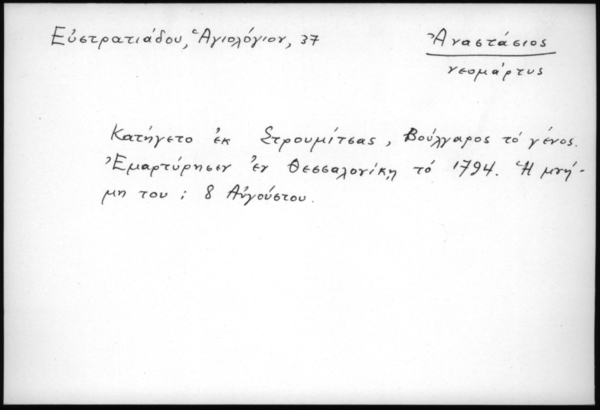 Εὐστρατιάδου, Ἁγιολόγιον, 37
Ἀναστάσιος
νεομάρτυς
Κατήγετο ἐκ Στρουμίτσας, Βούλγαρος τό γένος.
Ἐμαρτύρησεν ἐν Θεσσαλονίκῃ τό 1794. Ἡ μνή-
μη του : 8 Αὐγούστου.